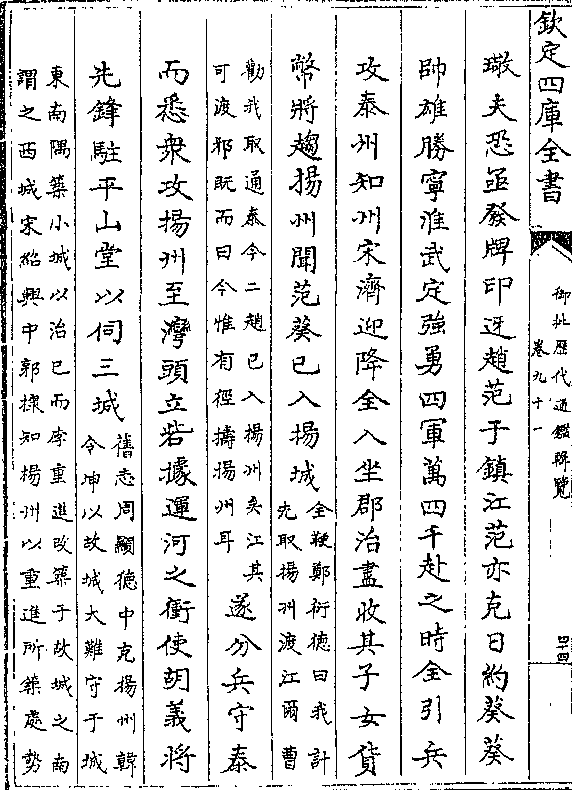 欽定四庫全書
御批歷代通鑑輯覽
卷九十一
四十四
璥夫恐亟發牌印迓趙范于鎮江范亦克日約葵葵
帥雄勝寧淮武定強勇四軍萬四千赴之時全引兵
攻泰州知州宋濟迎降全入坐郡治盡收其子女貨
幣將趨揚州聞范葵已入揚城
全鞭鄭衍德曰我計
先取揚州渡江爾曹
勸我取通泰今二趙已入揚州矣江其
可渡邪既而曰今惟有徑擣揚州耳
遂分兵守泰
而悉衆攻揚州至灣頭立砦據運河之衝使胡義將
先鋒駐平山堂以伺三城
舊志周顯德中克揚州韓
令坤以故城大難守于城
東南隅築小城以治已而李重進改築于故城之南
謂之西城宋紹興中郭棣知楊州以重進所築處勢